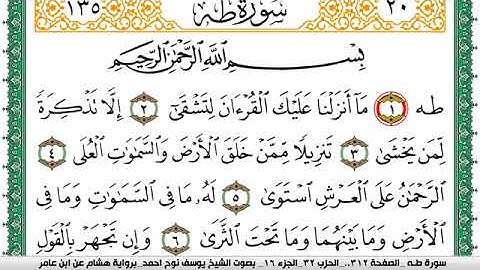 ١٣٥ سورة طه ٢٠
بِسْمِ اللَّهِ الرَّحْمَٰنِ الرَّحِيمِ
طه ١ مَا أَنزَلْنَا عَلَيْكَ الْقُرْءَانَ لِتَشْقَىٰ ٢ إِلَّا تَذْكِرَةً
لِّمَن يَخْشَىٰ ٣ تَنزِيلًا مِّمَّنْ خَلَقَ الْأَرْضَ وَالسَّمَٰوَٰتِ الْعُلَى ٤
الرَّحْمَٰنُ عَلَى الْعَرْشِ اسْتَوَىٰ ٥ لَهُ مَا فِي السَّمَٰوَٰتِ وَمَا فِي
الْأَرْضِ وَمَا بَيْنَهُمَا وَمَا تَحْتَ الثَّرَىٰ ٦ وَإِن تَجْهَرْ بِالْقَوْلِ
سورة طـه _الصفحة ٣١٢.. الحزب ٣٢_ الجزء ١٦_ بصوت الشيخ يوسف نوح احمد_برواية هشام عن ابن عامر